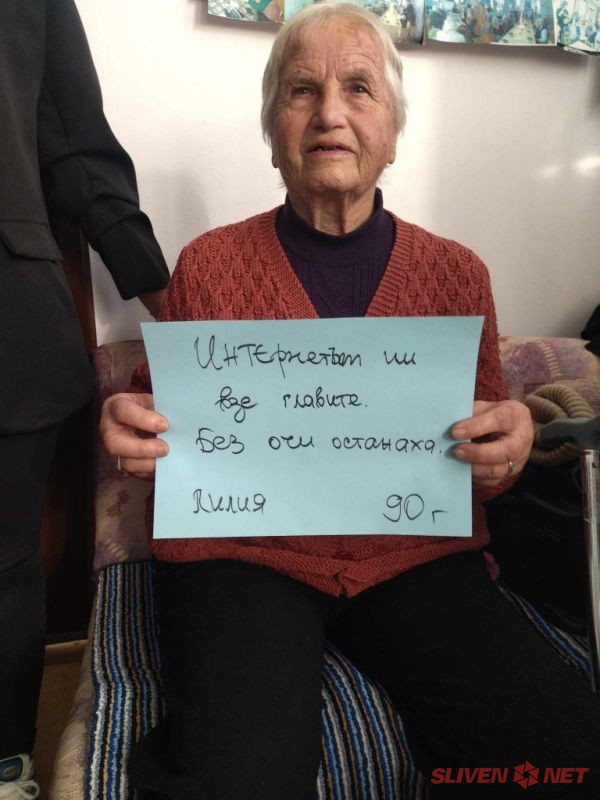 Интернетът ми
взе главите.
Без очи останаха.
Лилия 90 г
SLIVEN NET